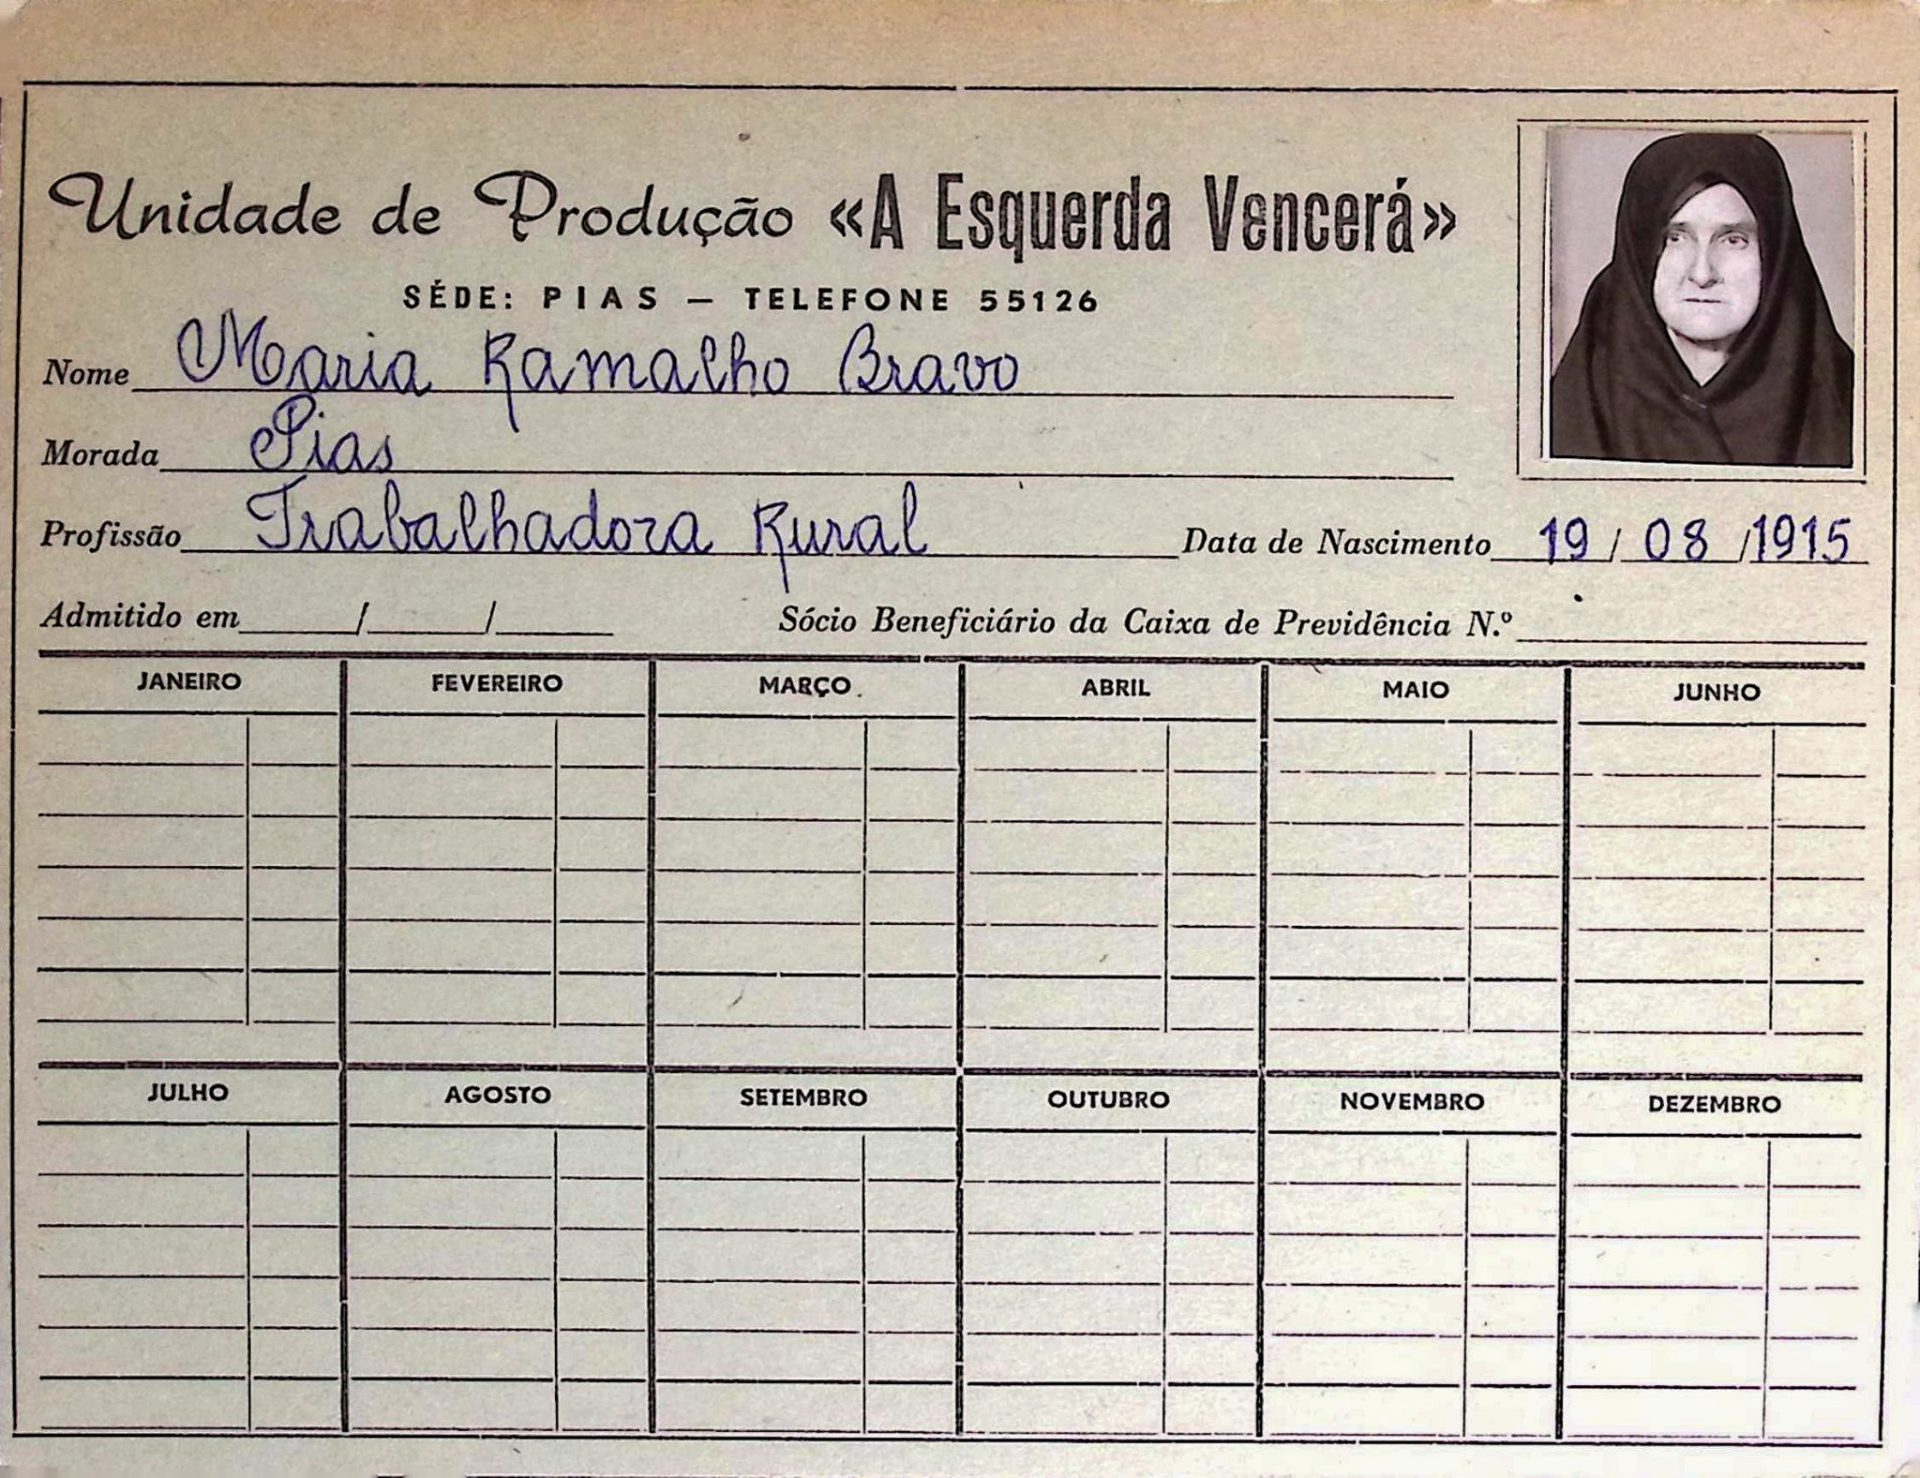 Unidade de Produção «A Esquerda Vencerá»
SÉDE: PIAS — TELEFONE 55126
Nome Maria Ramalho Bravo
Morada Pias
Profissão Trabalhadora Rural Data de Nascimento 19 / 08 / 1915
Admitido em / / Sócio Beneficiário da Caixa de Previdência N.º
JANEIRO FEVEREIRO MARÇO ABRIL MAIO JUNHO
JULHO AGOSTO SETEMBRO OUTUBRO NOVEMBRO DEZEMBRO